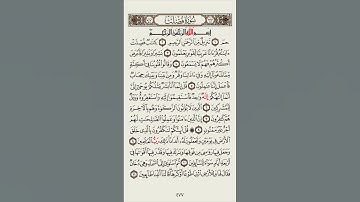 سُورَةُ فُصِّلَتْ
بِسْمِ اللَّهِ الرَّحْمَٰنِ الرَّحِيمِ
حمٓ ١ تَنزِيلٌ مِّنَ الرَّحْمَٰنِ الرَّحِيمِ ٢ كِتَٰبٌ فُصِّلَتْ
ءَايَٰتُهُۥ قُرْءَانًا عَرَبِيًّا لِّقَوْمٍ يَعْلَمُونَ ٣ بَشِيرًا وَنَذِيرًا فَأَعْرَضَ
أَكْثَرُهُمْ فَهُمْ لَا يَسْمَعُونَ ٤ وَقَالُوا۟ قُلُوبُنَا فِىٓ أَكِنَّةٍ
مِّمَّا تَدْعُونَآ إِلَيْهِ وَفِىٓ ءَاذَانِنَا وَقْرٌ وَمِنۢ بَيْنِنَا وَبَيْنِكَ حِجَابٌ
فَٱعْمَلْ إِنَّنَا عَٰمِلُونَ ٥ قُلْ إِنَّمَآ أَنَا۠ بَشَرٌ مِّثْلُكُمْ يُوحَىٰٓ إِلَىَّ
أَنَّمَآ إِلَٰهُكُمْ إِلَٰهٌ وَٰحِدٌ فَٱسْتَقِيمُوٓا۟ إِلَيْهِ وَٱسْتَغْفِرُوهُ وَوَيْلٌ
لِّلْمُشْرِكِينَ ٦ ٱلَّذِينَ لَا يُؤْتُونَ ٱلزَّكَوٰةَ وَهُم بِٱلْءَاخِرَةِ هُمْ
كَٰفِرُونَ ٧ إِنَّ ٱلَّذِينَ ءَامَنُوا۟ وَعَمِلُوا۟ ٱلصَّٰلِحَٰتِ لَهُمْ أَجْرٌ
غَيْرُ مَمْنُونٍ ٨ قُلْ أَئِنَّكُمْ لَتَكْفُرُونَ بِٱلَّذِى خَلَقَ
ٱلْأَرْضَ فِى يَوْمَيْنِ وَتَجْعَلُونَ لَهُۥٓ أَندَادًا ذَٰلِكَ رَبُّ ٱلْعَٰلَمِينَ ٩
وَجَعَلَ فِيهَا رَوَٰسِىَ مِن فَوْقِهَا وَبَٰرَكَ فِيهَا وَقَدَّرَ فِيهَآ أَقْوَٰتَهَا فِىٓ
أَرْبَعَةِ أَيَّامٍ سَوَآءً لِّلسَّآئِلِينَ ١٠ ثُمَّ ٱسْتَوَىٰٓ إِلَى ٱلسَّمَآءِ وَهِىَ دُخَانٌ
فَقَالَ لَهَا وَلِلْأَرْضِ ٱئْتِيَا طَوْعًا أَوْ كَرْهًا قَالَتَآ أَتَيْنَا طَآئِعِينَ ١١
٤٧٧